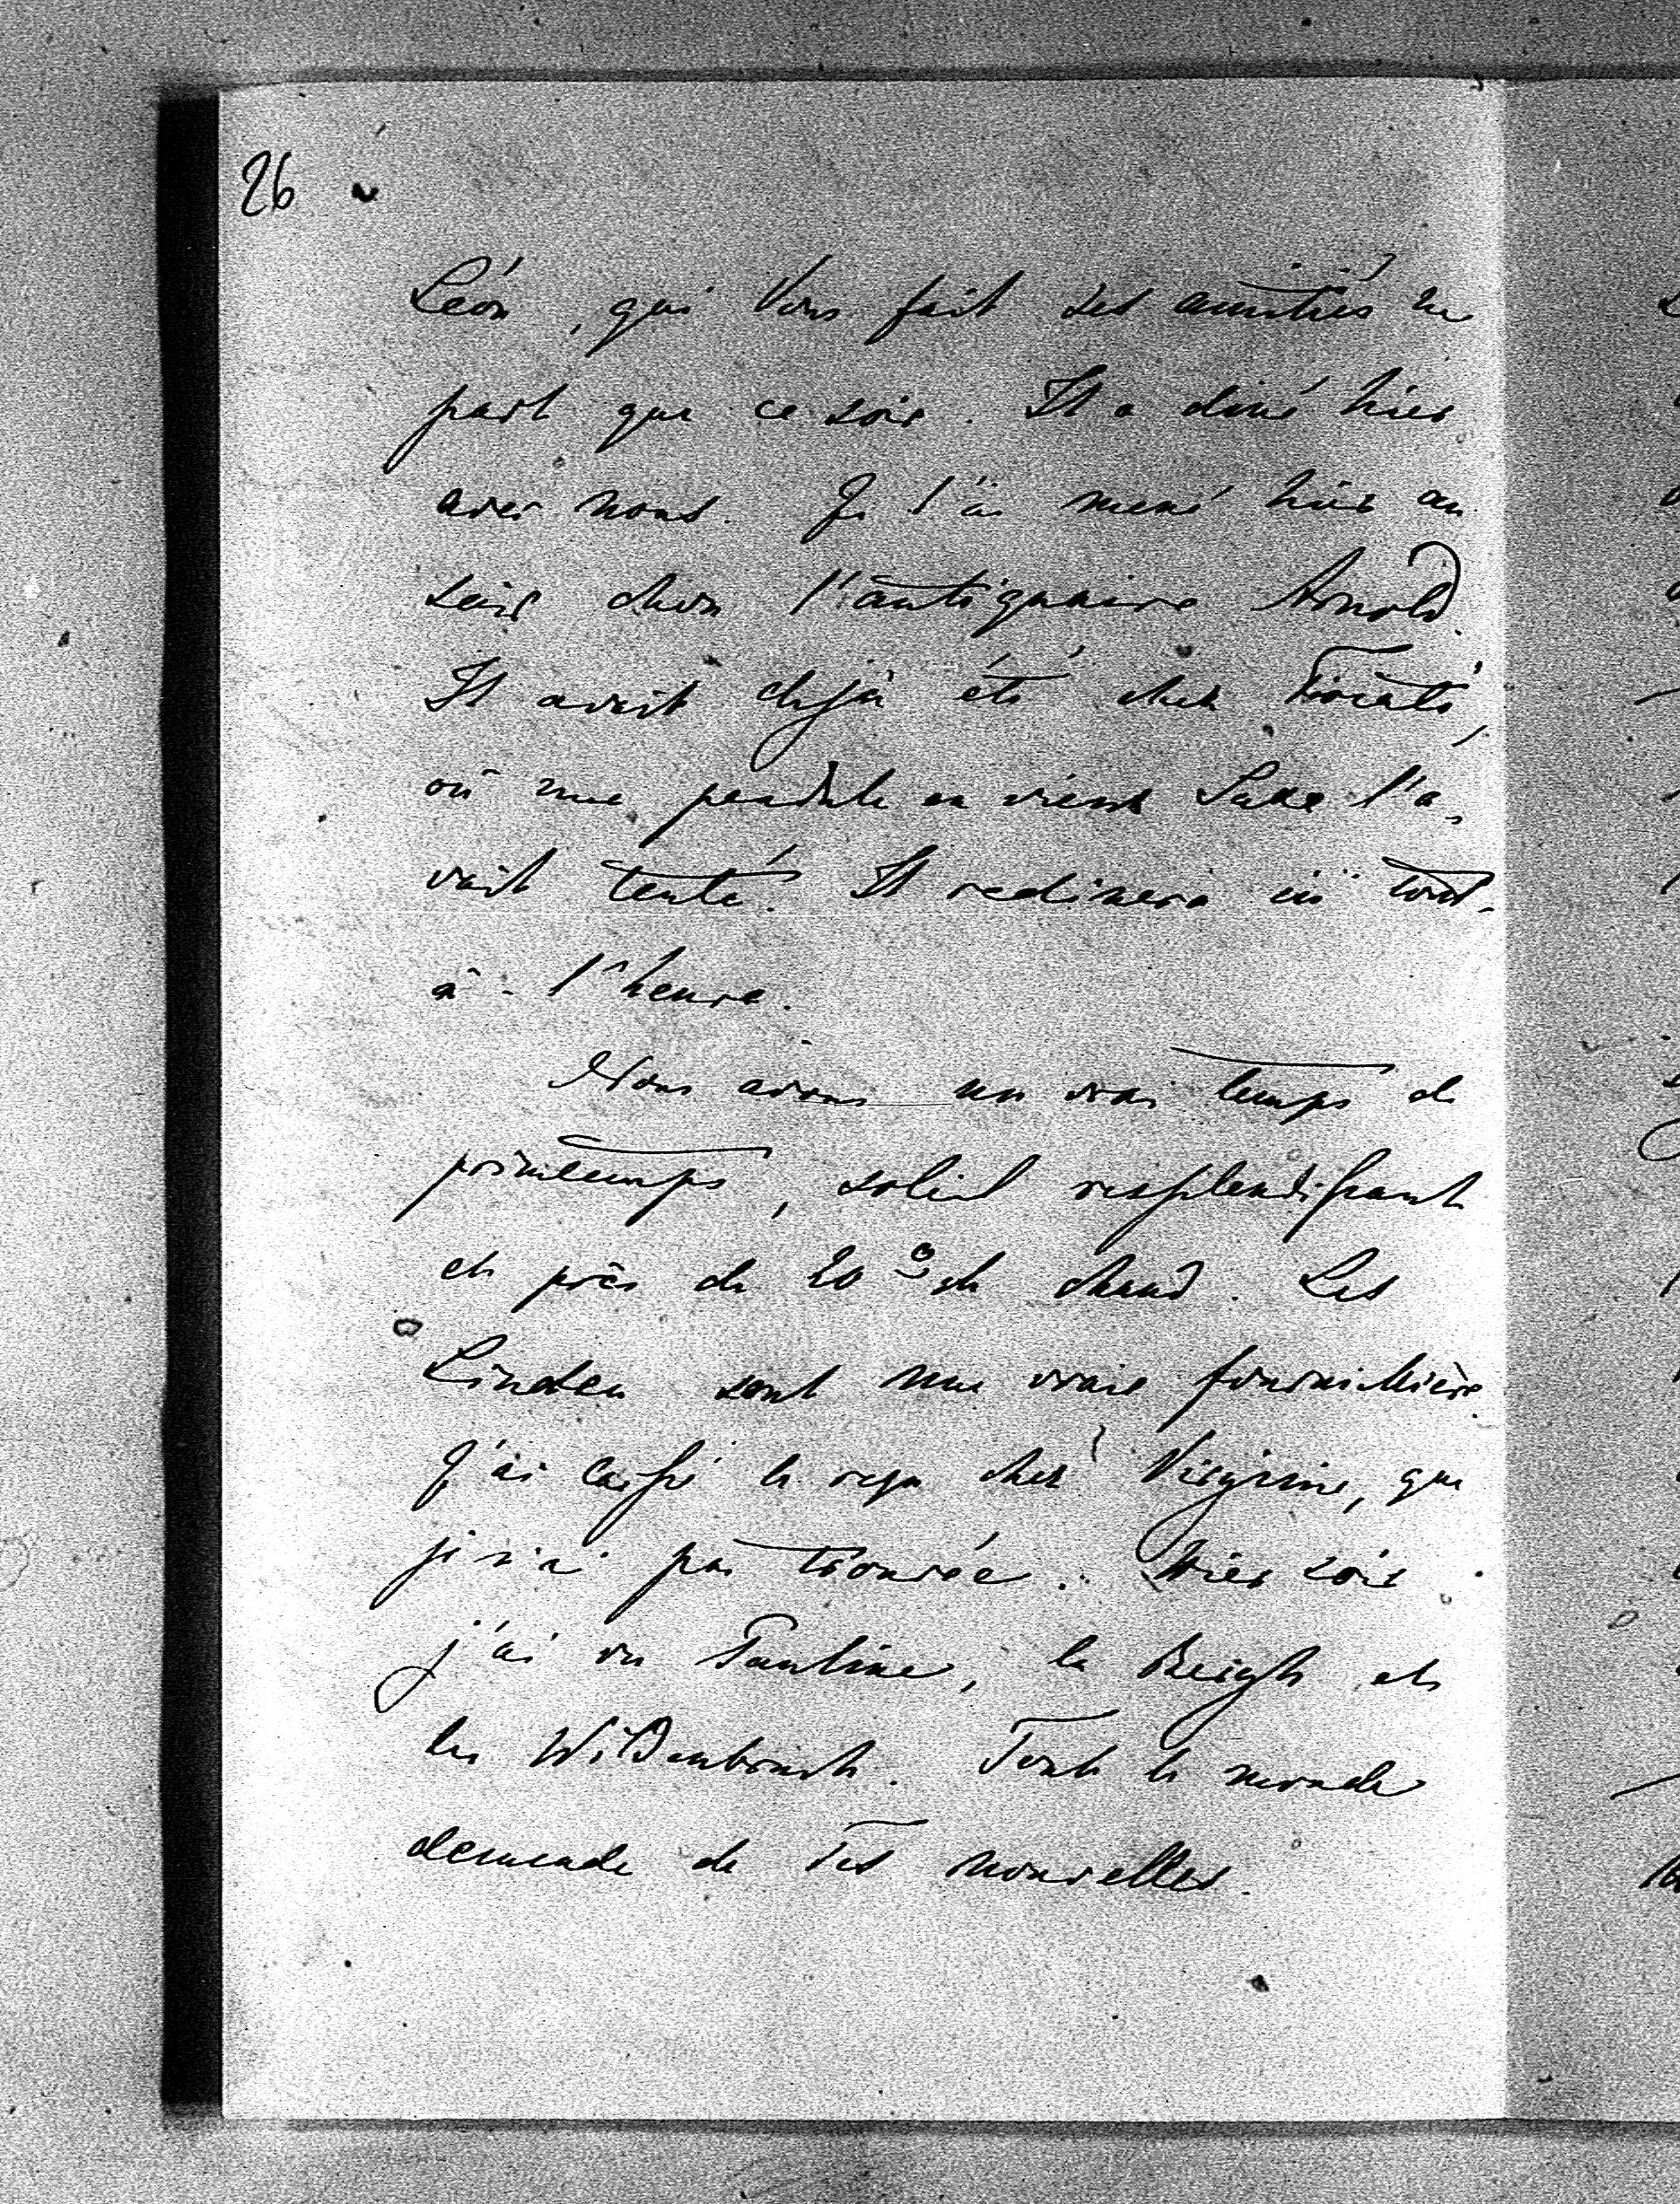 26
Léon, qui Vous fait ses amitiés ne
part que ce soir. Il a diné hier
avec nous. Je l'ai mené hier au
soir chez l'antiquaire Arnold.
Il avait déjà été chez
où une pendule en vieux Saxe l'a-
vait tenté. Il redinera ici tout-
à-l'heure.
Nous avons un vrai temps de
printemps, soleil resplendissant
et près de 20° de chaud. Les
Linden sont une vraie fourmillière.
J'ai cassé le cou chez Virginie, que
je n'ai pas trouvée. Hier soir
j'ai vu Pauline, la et
les Wildenbruch. Tout le monde
demande de Tes nouvelles.